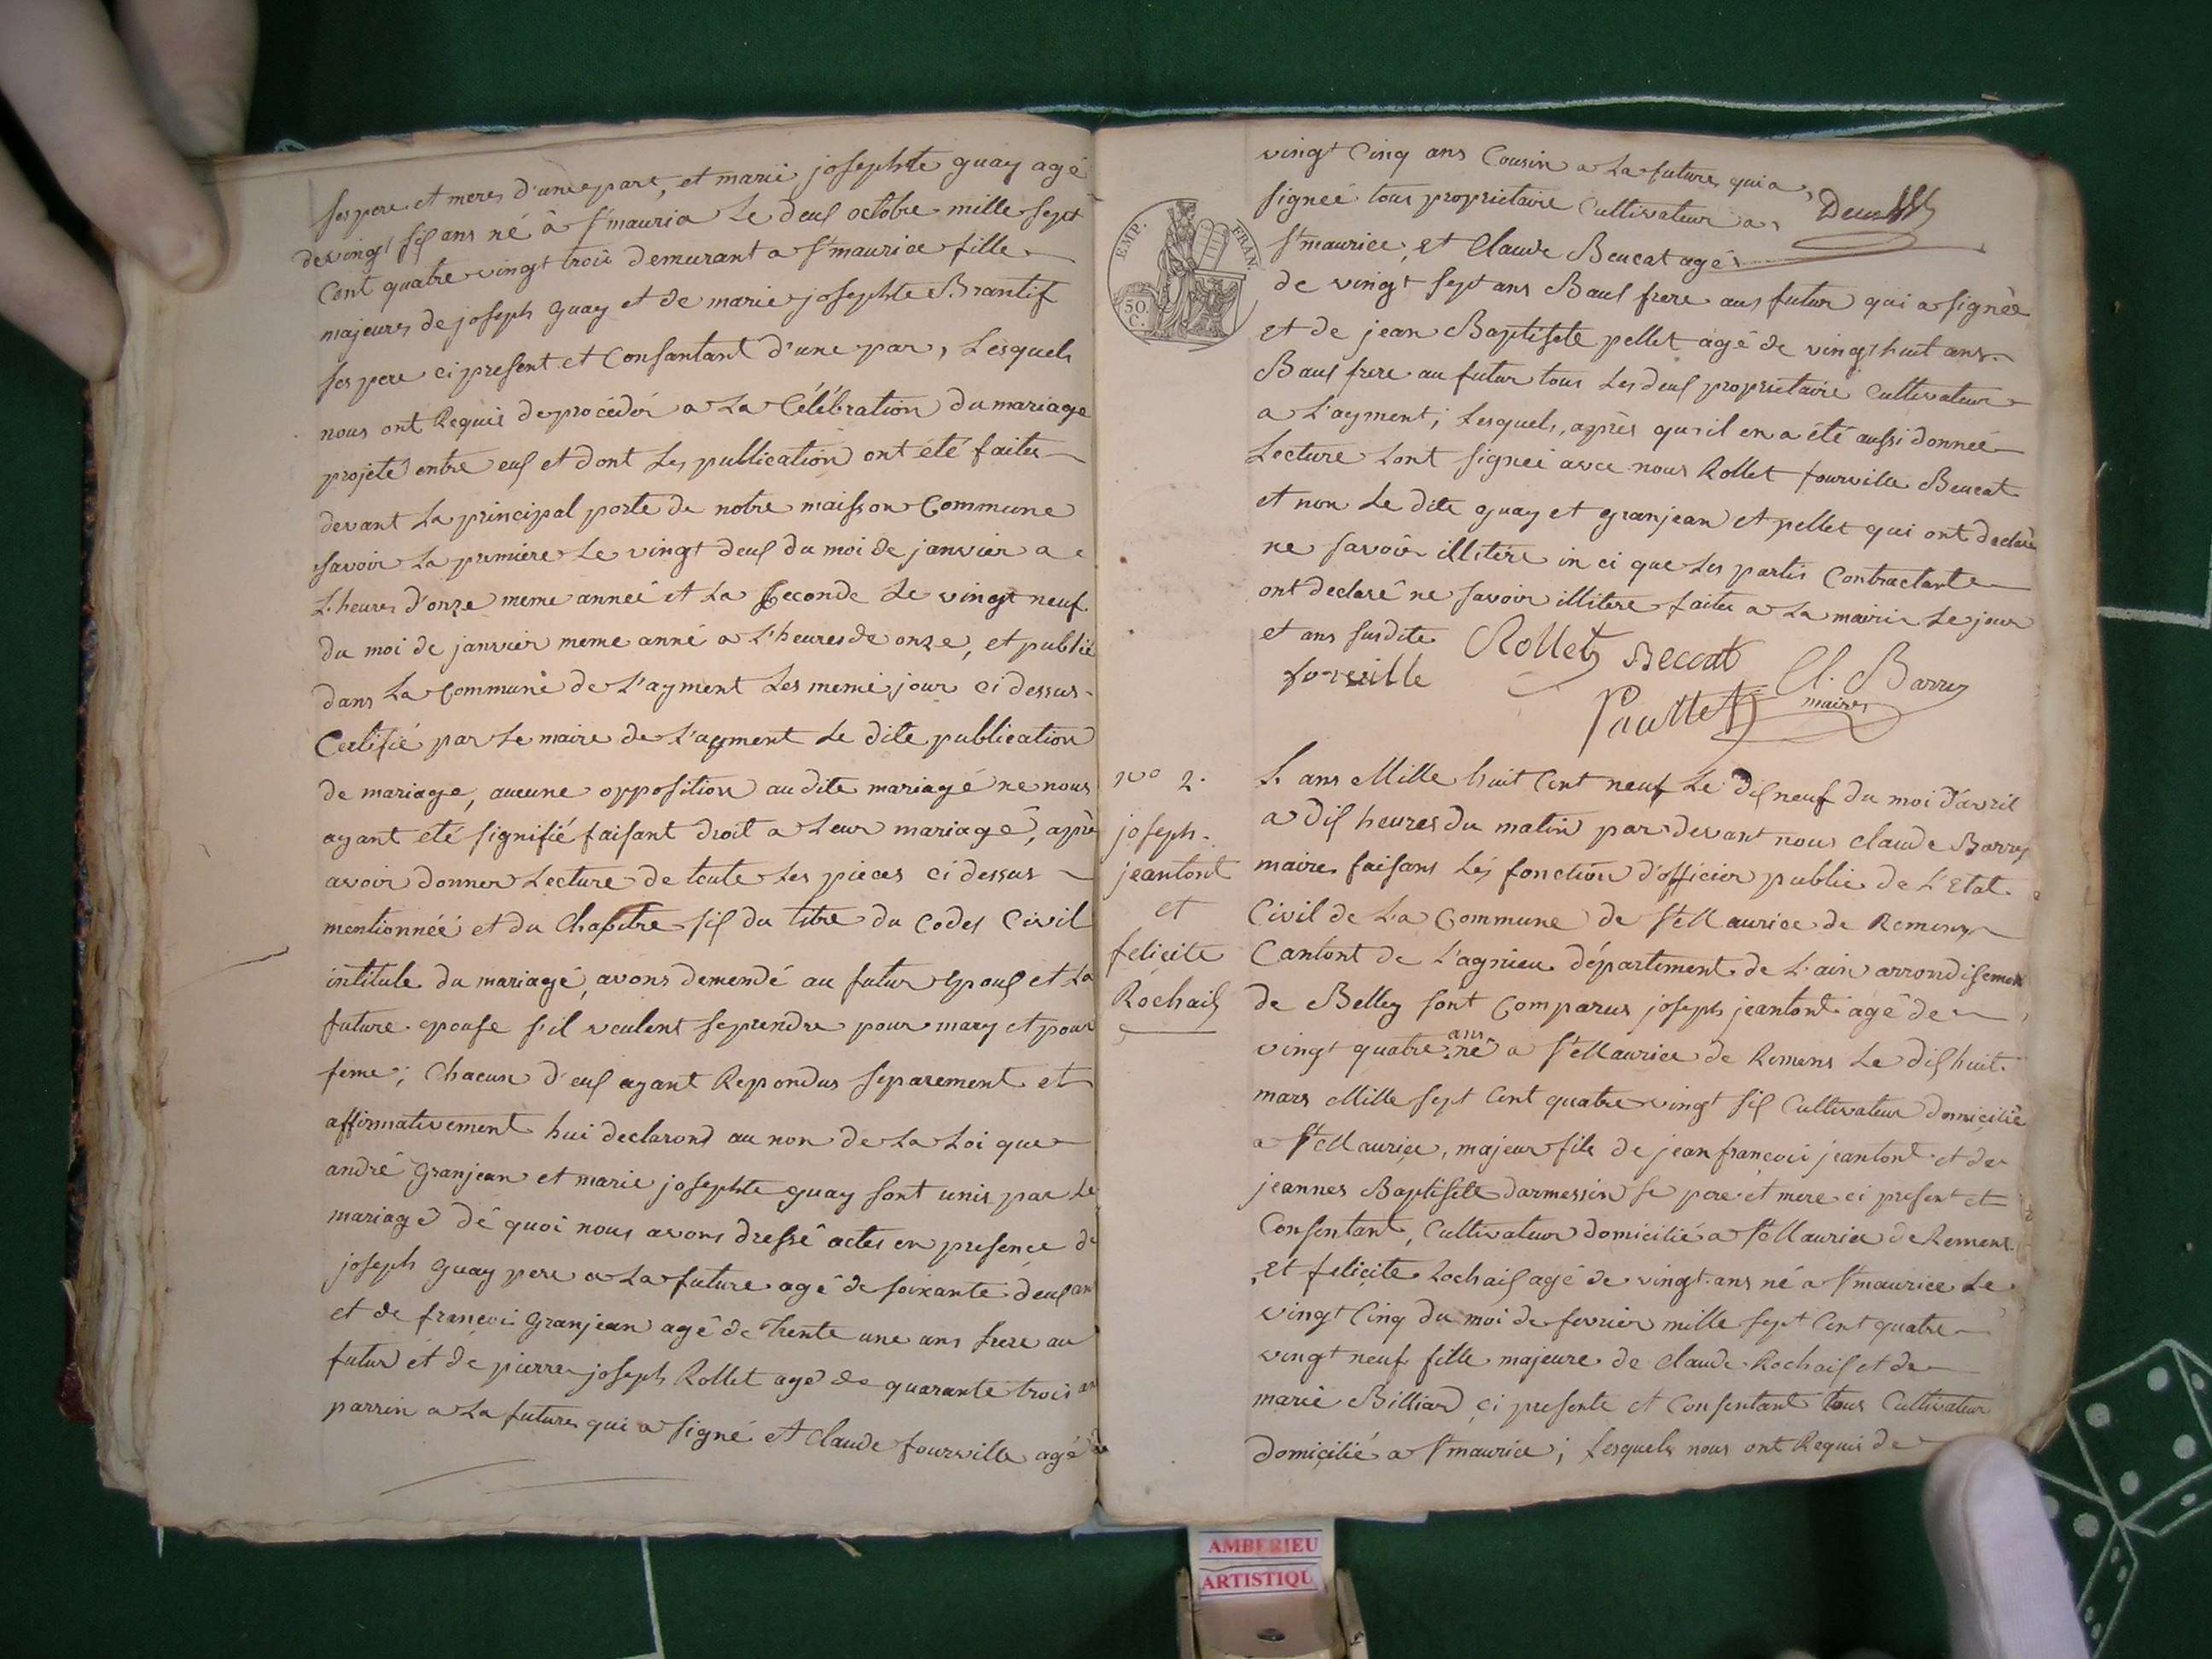 ses pere et meres d'une part, et marie josephte guay agé
de vingt six ans né à St mauria Le deux octobre mille sept
Cent quatre vingt trois demurant a St maurice fille
majeures de joseph guay et de marie josephte Brantif
ses pere ci present et Consantant d'une par, Lesquels
nous ont Requis de procédér a La Célébration du mariage
projeté entre eux et dont Les publication ont été faites
devant La principal porte de notre maison Commune
savoir La premiere Le vingt deux du moi de janvier a
L'heures d'onze meme anneé et La Seconde Le vingt neuf
du moi de janvier meme anné a L'heures de onze, et publié
dans La Commune de L'ayment Les meme jour ci dessus
Certifié par Le maire de L'ayment Le dite publication
de mariage, aucune opposition au dite mariagé ne nous
ayant eté signifié faisant droit a Leur mariagé, après
avoir donner Lecture de toute Les pieces ci dessus
mentionnéé et du Chapitre six du titre du Codes Civil
intitule du mariagé, avons demendé au futur Epoux et La
future epouse s'il veulent se prendre pour mary et pour
feme; Chacun d'eux ayant Repondus separement et
affirmativement hui declarond au non de La Loi que
andré Granjean et marie josephte guay sont unis par Le
mariagé dé quoi nous avons dressé actes en presence de
joseph Guay pere a La future agé de soixante deux ans
et de françois Granjean agé de trente une ans frere au
futur et de pierre joseph Rollet agé de quarante trois ans
parrin a La futures qui a signé et Claude fourville agé de
vingt Cinq ans Cousin a La futures qui a
signeé tous proprietaire Cultivateur a
St maurice, et Claude Beucat agé
de vingt sept ans Baux frere aux futur qui a signée
et de jean Baptisete pellet agé de vingt huit ans
Baux frere au futur tous Les deux proprietaire Cultivateur
a L'ayment; Lesquels, après qu'il en a été aussi donneé
Lecture Lont signeé avec nous Rollet fourville Beucat
et non Le dite guay et granjean et pellet qui ont declaré
ne savoir illitere in ci que Les partis Contractante
ont declaré ne savoir illitere faites a La mairie Le jour
et ans susdite Rollet Beccat
forville Cl. Barry
maires
EMP. FRAN.
50.
C.
N° 2.
joseph
jeantont
et
felicite
Rochaix
L'ans Mille huit Cent neuf Le dix neuf du moi d'avril
a dix heures du matin par devant nous Claude Barry
maires faisans Lés fonction d'officier public de L'Etat
Civil de La Commune de St Maurice de Remens
Cantont de L'agnieu département de L'ain arrondisement
de Belley sont Comparus joseph jeantont agé de
vingt quatre ans né a St Maurice de Remens Le dix huit
mars Mille sept Cent quatre vingt six Cultivateur domicilié
a St Maurice, majeur fils de jean françois jeantont et de
jeannes Baptisete Darmessin se pere et mere ci present et
Consentant, Cultivateur domicilié a St Maurice de Remens
et felicite Rochaix agé de vingt ans né a St maurice Le
vingt Cinq du moi de fevrier mille sept Cent quatre
vingt neuf fille majeure de Claude Rochaix et de
marie Billiard ci presente et Consentant tous Cultivateur
domicilié a St maurice; Lesquels nous ont Requis de
AMBERIEU
ARTISTIQU